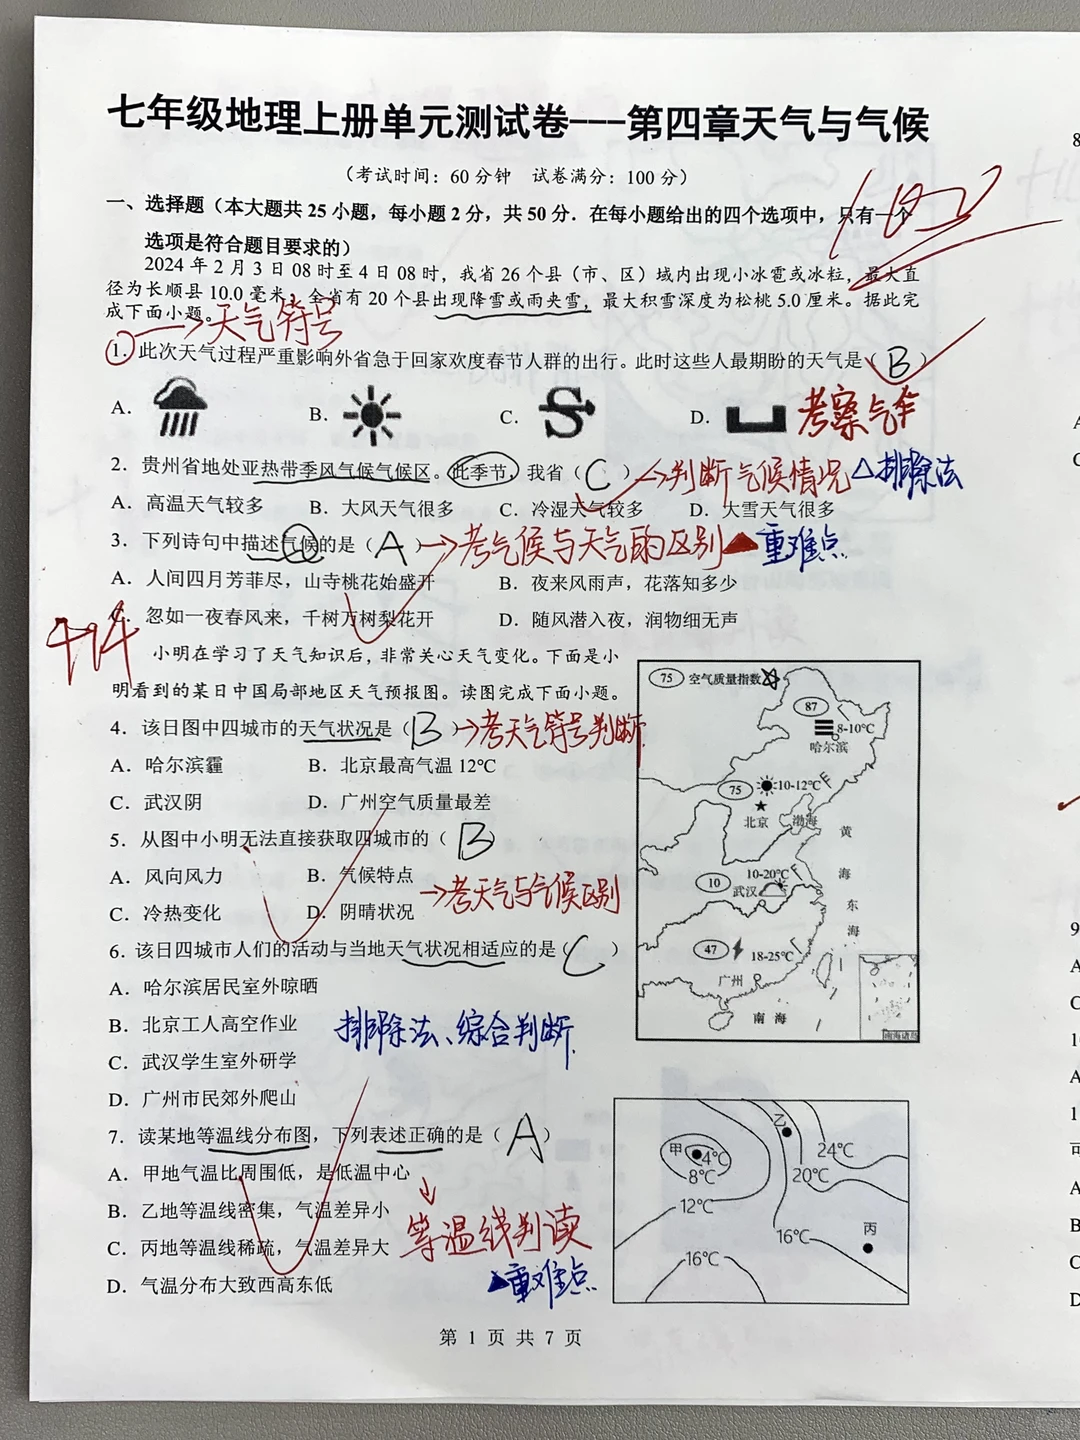 七年级地理上册单元测试卷---第四章天气与气候
（考试时间：60分钟 试卷满分：100分）
一、选择题（本大题共25小题，每小题2分，共50分．在每小题给出的四个选项中，只有一个
选项是符合题目要求的）
2024年2月3日08时至4日08时，我省26个县（市、区）域内出现小冰雹或冰粒，最大直
径为长顺县10.0毫米，全省有20个县出现降雪或雨夹雪，最大积雪深度为松桃5.0厘米。据此完
成下面小题。
→天气符号
1．此次天气过程严重影响外省急于回家欢度春节人群的出行。此时这些人最期盼的天气是（B）
A． B． C． D． 考察气车
2．贵州省地处亚热带季风气候气候区。此季节，我省（C）→判断气候情况△排除法
A．高温天气较多 B．大风天气很多 C．冷湿天气较多 D．大雪天气很多
3．下列诗句中描述气候的是（A）→考气候与天气的区别▲重难点
A．人间四月芳菲尽，山寺桃花始盛开 B．夜来风雨声，花落知多少
C．忽如一夜春风来，千树万树梨花开 D．随风潜入夜，润物细无声
小明在学习了天气知识后，非常关心天气变化。下面是小
明看到的某日中国局部地区天气预报图。读图完成下面小题。
4．该日图中四城市的天气状况是（B）→考天气符号判断
A．哈尔滨霾 B．北京最高气温12℃
C．武汉阴 D．广州空气质量最差
5．从图中小明无法直接获取四城市的（B）
A．风向风力 B．气候特点
→考天气与气候区别
C．冷热变化 D．阴晴状况
6．该日四城市人们的活动与当地天气状况相适应的是（C）
A．哈尔滨居民室外晾晒
B．北京工人高空作业
排除法、综合判断
C．武汉学生室外研学
D．广州市民郊外爬山
75 空气质量指数
87
8-10℃
哈尔滨
75 10-12℃
北京
渤海
黄
海
10 10-20℃
武汉
东
海
47 18-25℃
广州
南 海
南海诸岛
7．读某地等温线分布图，下列表述正确的是（A）
A．甲地气温比周围低，是低温中心
B．乙地等温线密集，气温差异小
C．丙地等温线稀疏，气温差异大
等温线判读
D．气温分布大致西高东低
▲重难点
甲 4℃
8℃
12℃
16℃
乙
24℃
20℃
16℃
丙
第 1 页 共 7 页